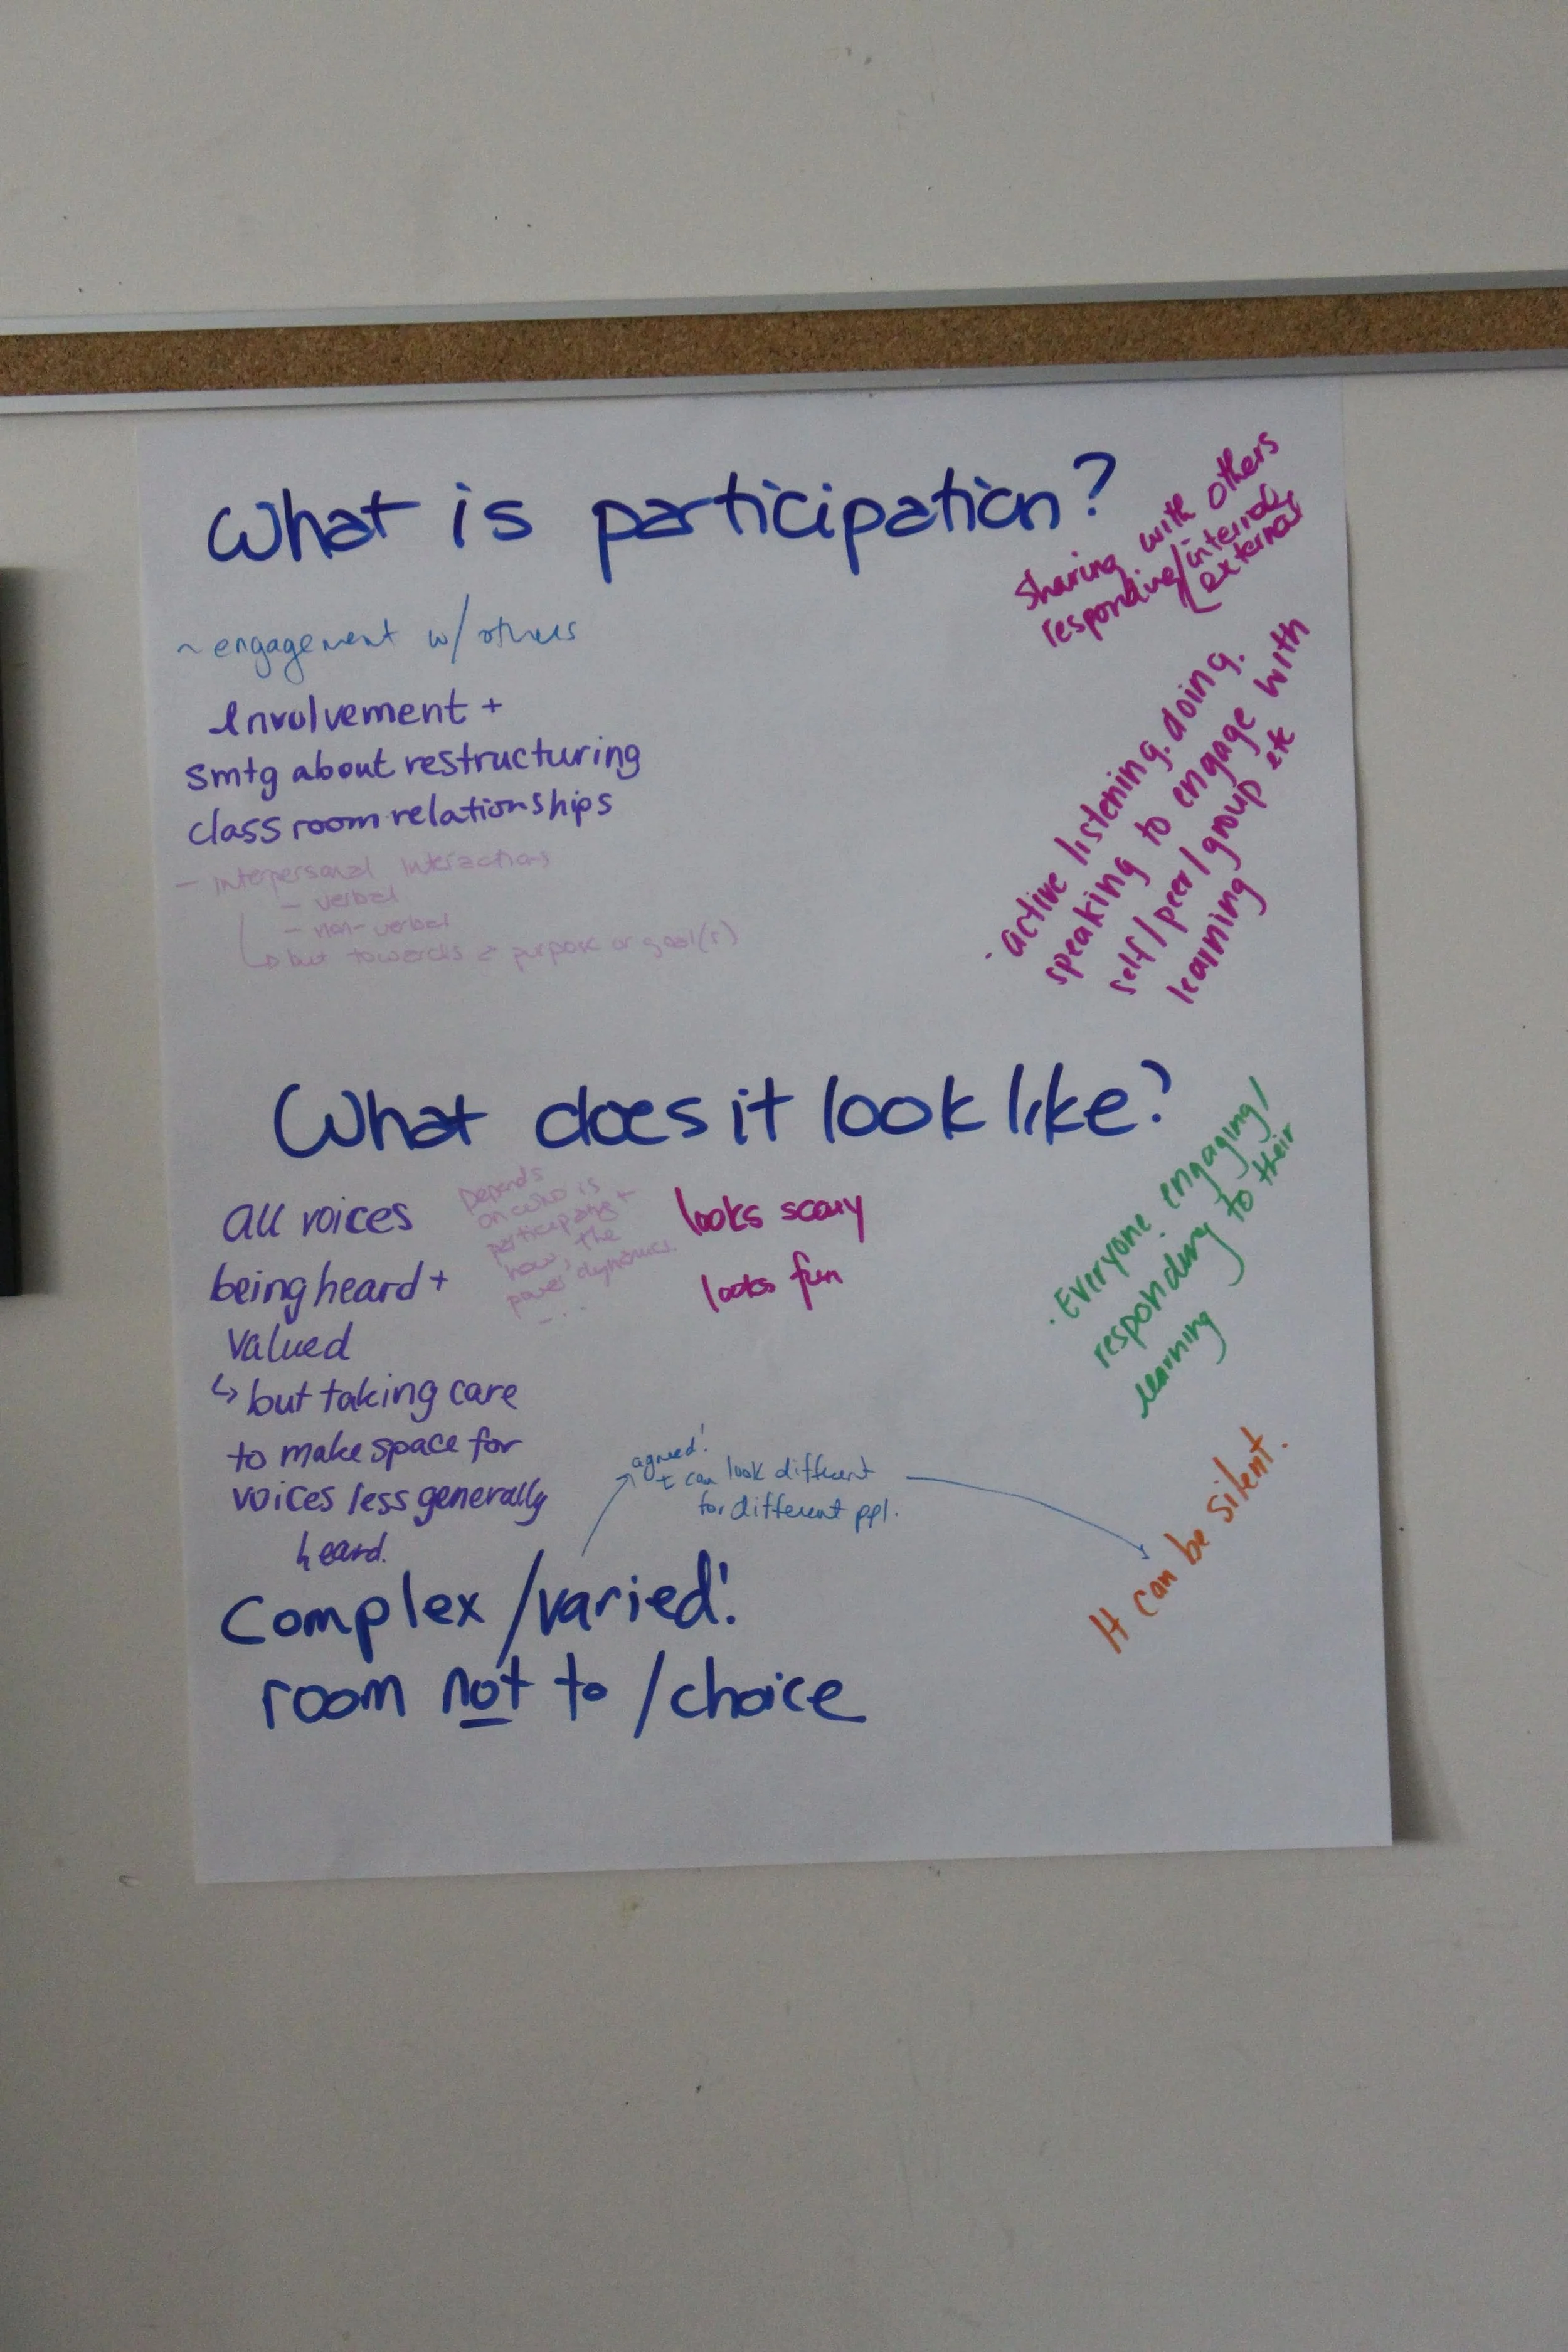 What is participation?
~ engagement w/ others
Involvement +
smtg about restructuring
classroom relationships
- interpersonal interactions
- verbal
- non-verbal
↳ but towards a purpose or goal(s)
Sharing with others
responding/internal,
external
· active listening. doing.
speaking to engage with
self/peer/group etc
learning
What does it look like?
all voices
being heard +
valued
↳ but taking care
to make space for
voices less generally
heard.
Depends
on who is
participating +
how, the
power dynamics.
- ...
looks scary
looks fun
· Everyone engaging/
responding to their
learning
agreed!
it can look different
for different ppl.
It can be silent.
Complex/varied!
room not to/choice